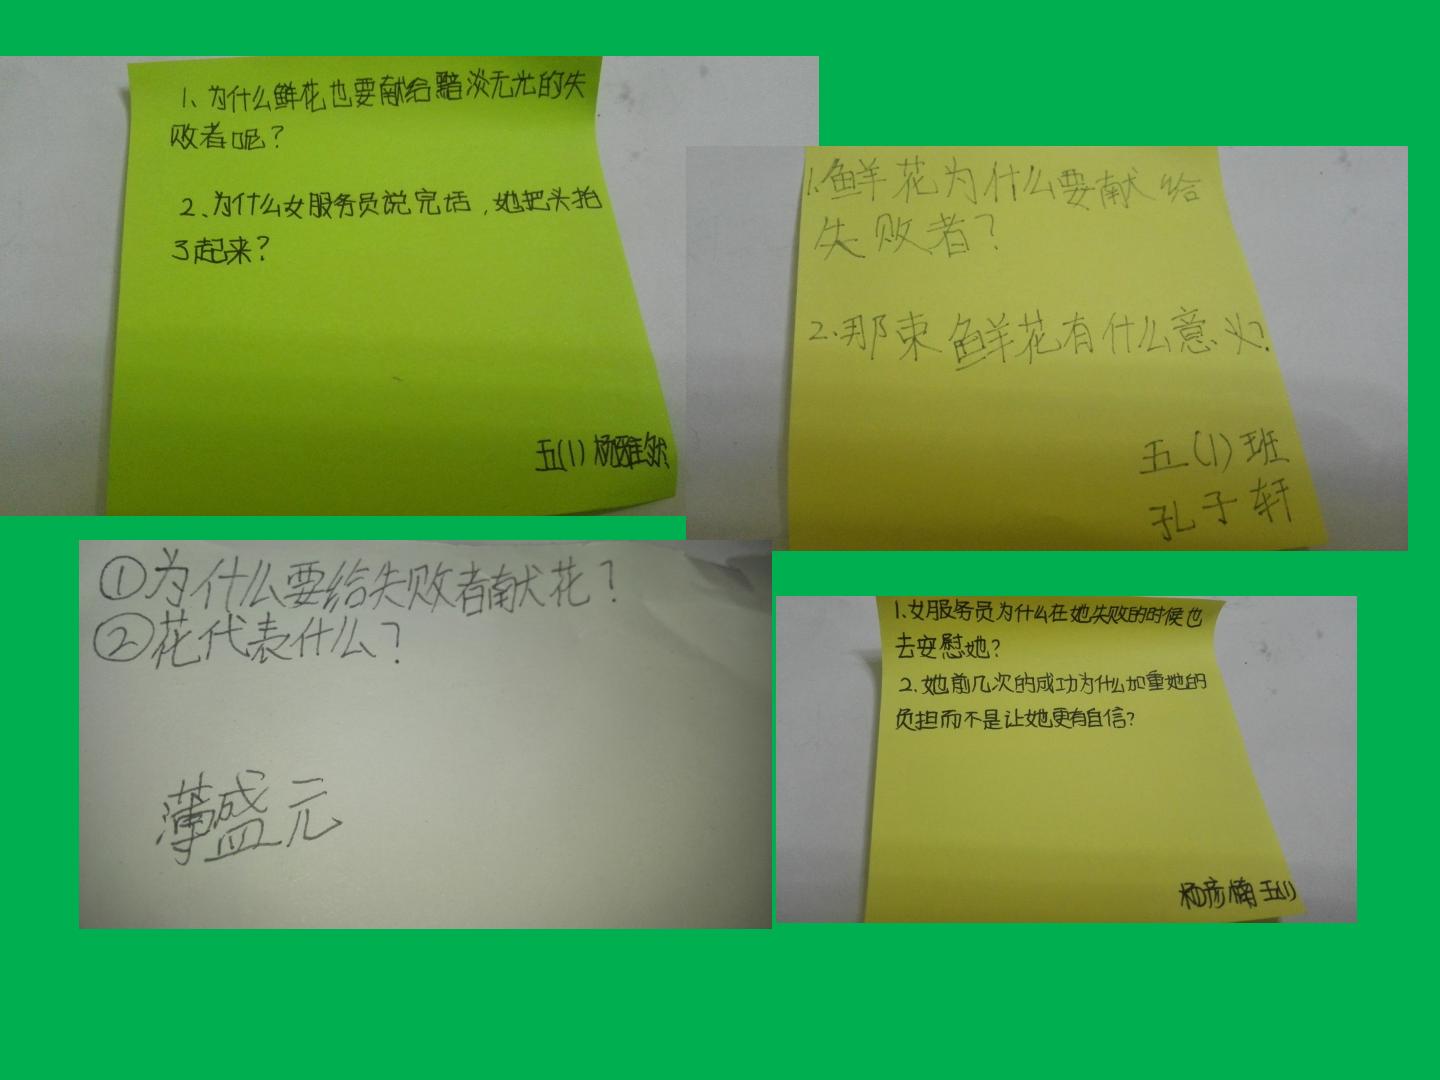 1、为什么鲜花也要献给黯淡无光的失
败者呢？
2、为什么女服务员说完话，她把头抬
了起来？
五(1) 杨雅然
1.鲜花为什么要献给
失败者？
2.那束鲜花有什么意义？
五(1)班
孔子轩
①为什么要给失败者献花？
②花代表什么？
薄盛元
1.女服务员为什么在她失败的时候也
去安慰她？
2.她前几次的成功为什么加重她的
负担而不是让她更有自信？
杨彦楠 五(1)